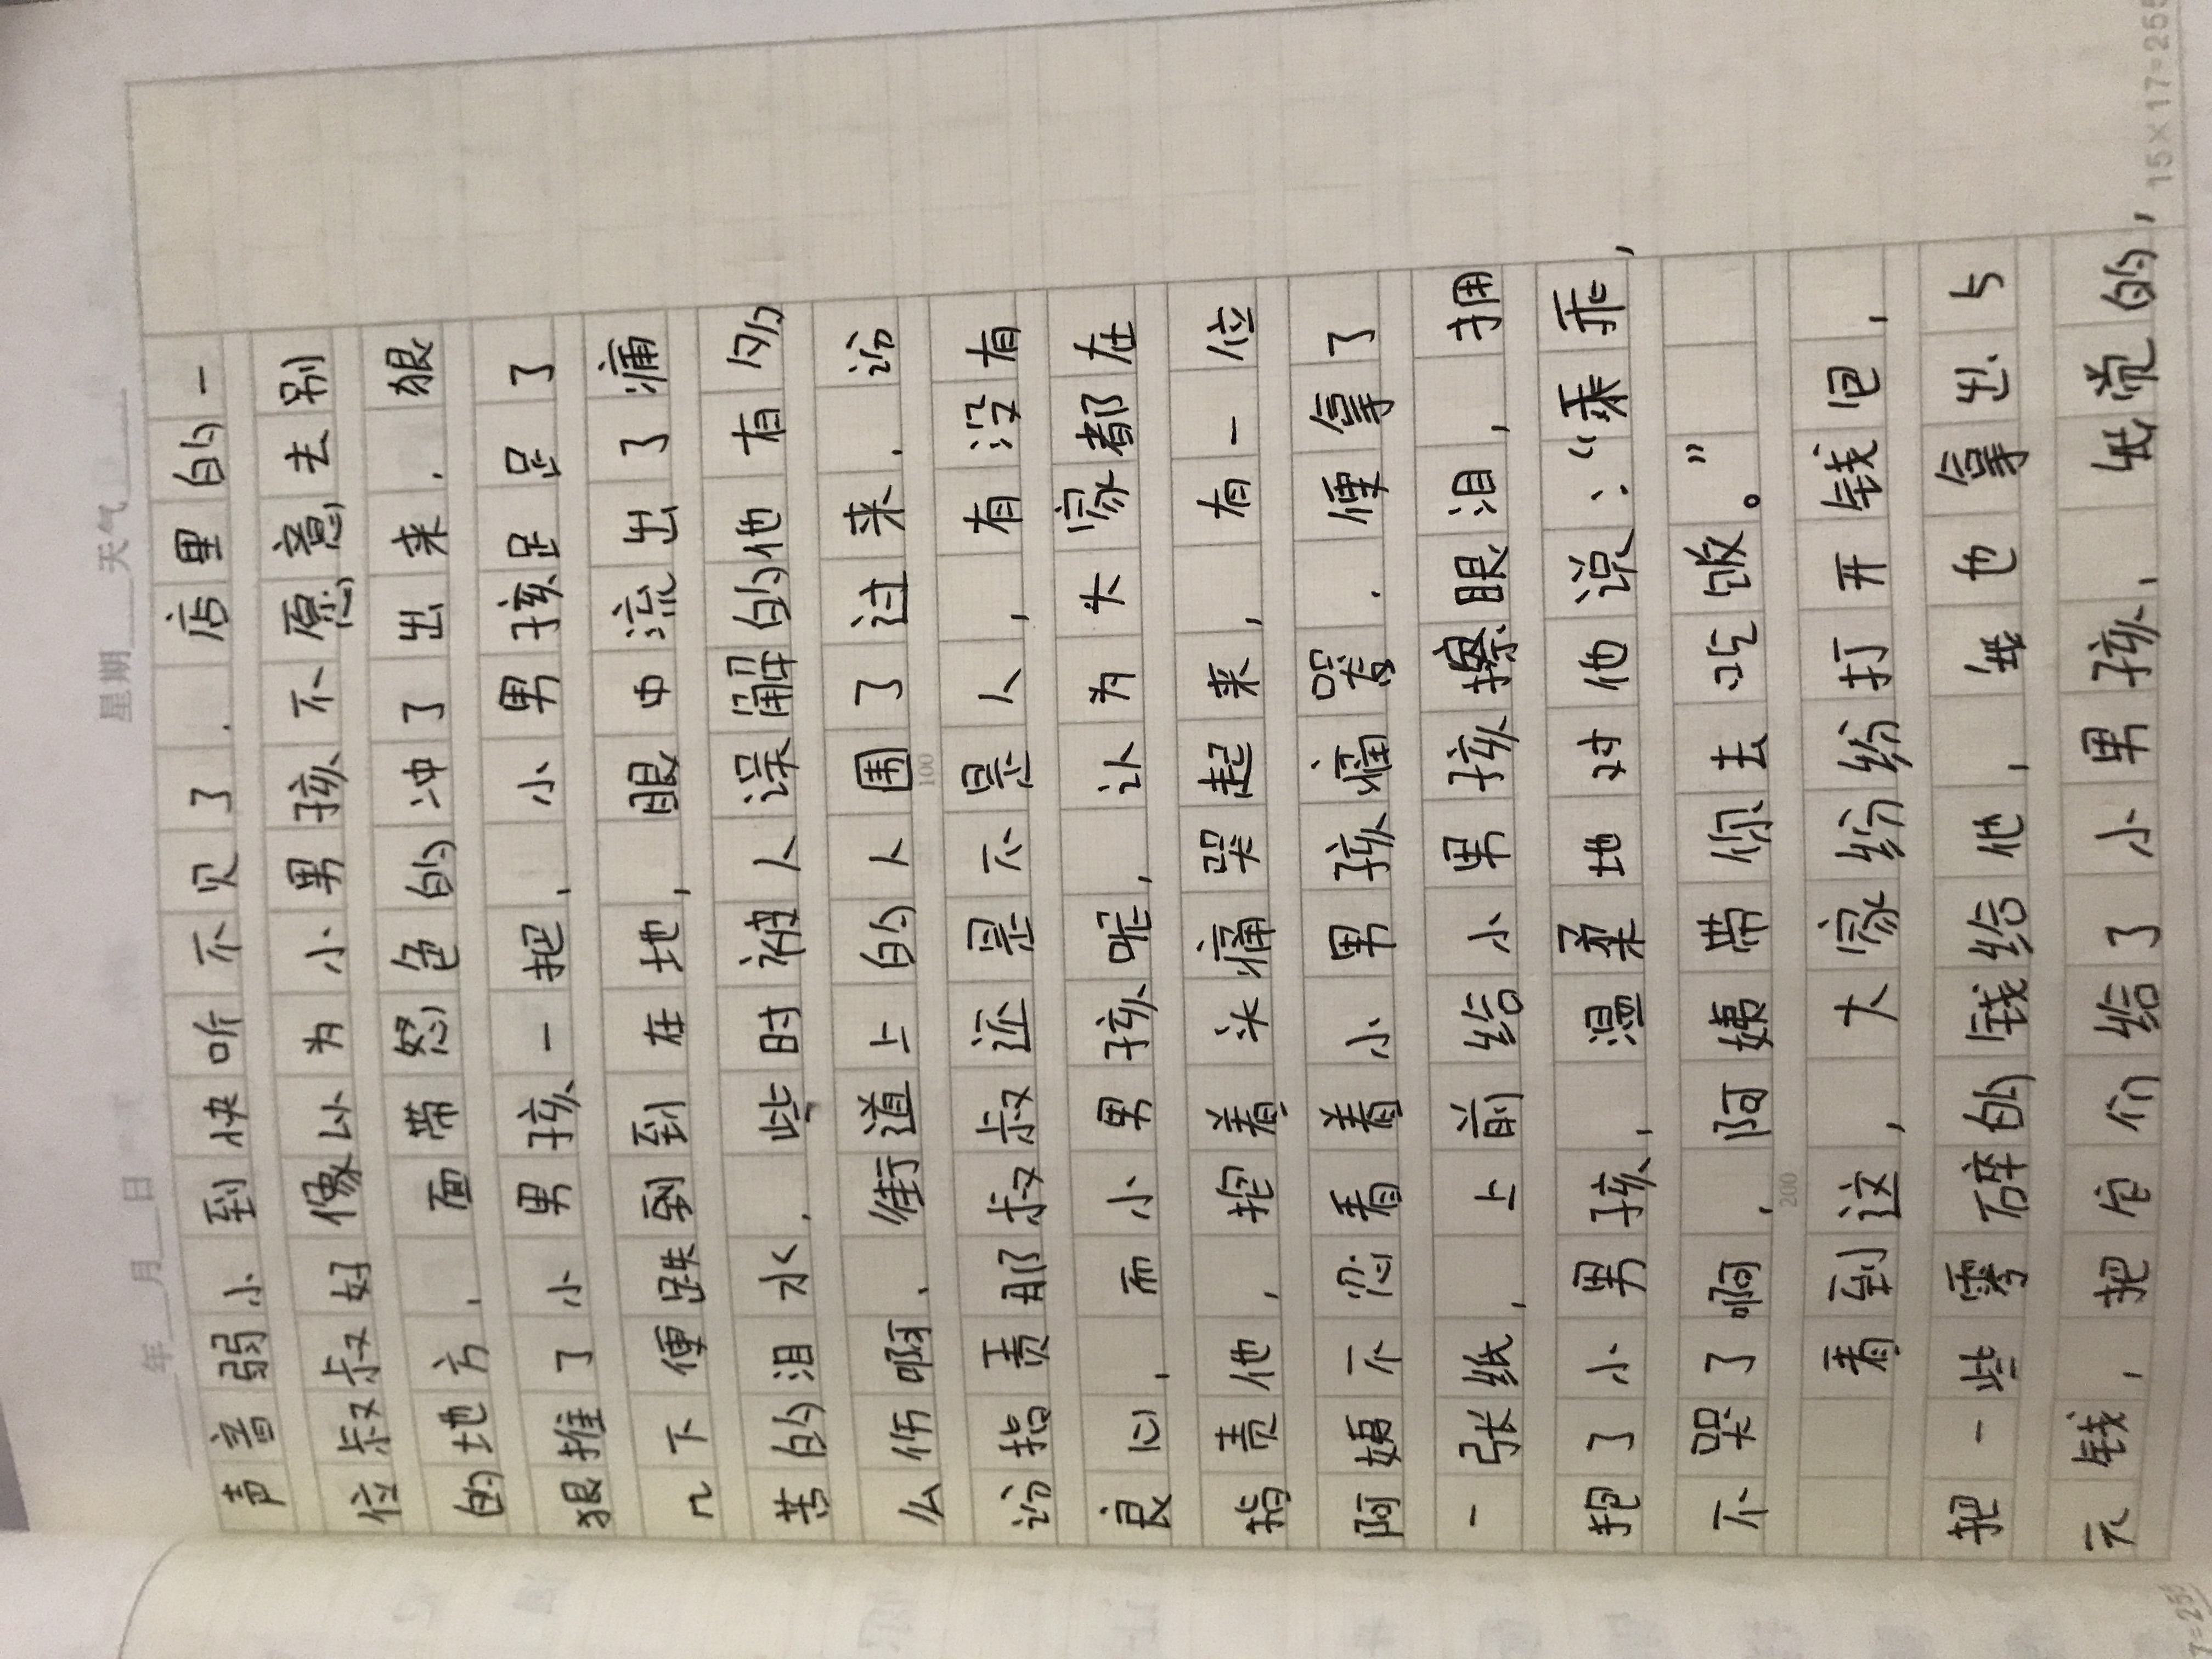 年 月 日 星期 天气
声音弱小到快听不见了.店里的一
位叔叔好像以为小男孩不愿意去别
的地方.面带怒色的冲了出来.狠
狠推了小男孩一把,小男孩足足了
几下便跌到到在地,眼中流出了痛
苦的泪水.此时被人误解的他有多
么伤啊.街道上的人围了过来.议
论指责那叔叔还是不是人,有没有
良心.而小男孩呢,认为大家都在
指责他,抱着头痛哭起来,有一位
阿姨不忍看着小男孩痛哭.便拿了
一张纸,上前给小男孩擦眼泪,拥
抱了小男孩,温柔地对他说:“乖乖,
不哭了啊.阿姨带你去吃饭。”
看到这,大家纷纷打开钱包,
把一些零碎的钱给他,我也拿出5
元钱,把它们给了小男孩,我觉的,
100
200
15×17=255